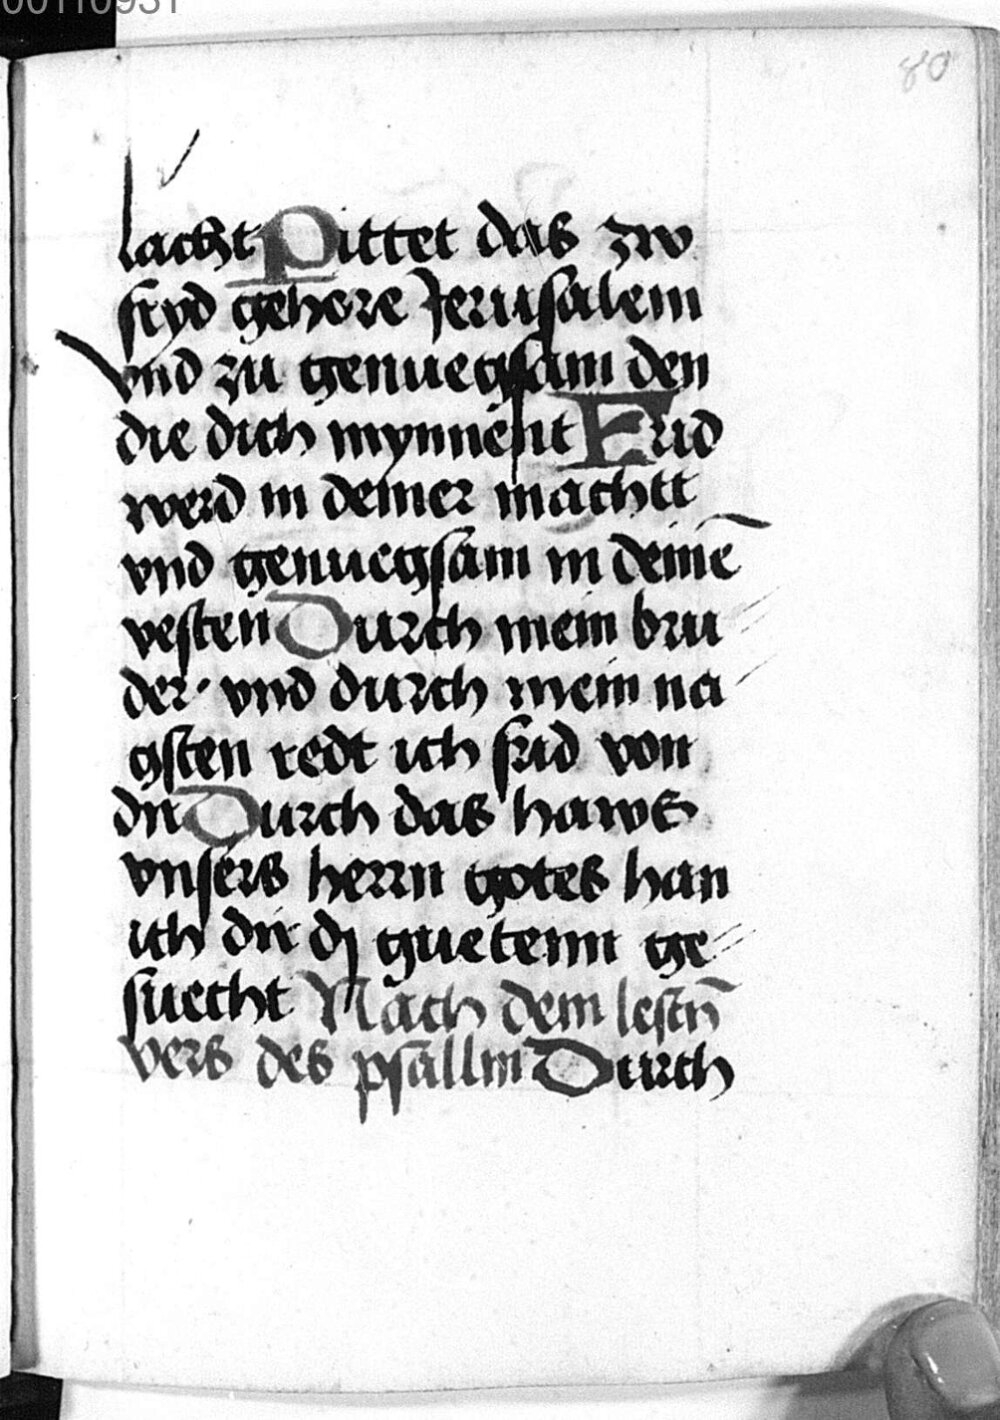 80
lacht Pittet das zw
fryd gehore Jerusalem
vnd zu genuegsam den
die dich mynnent Frid
werd in deiner machtt
vnd genuegsam in deinē
vesten Durch mein bru
der vnd durch mein na
gsten redt ich frid von
dir Durch das haws
vnsers herrn gotes han
ich dir dj guetenn ge
suecht Nach dem lestn̄
vers des psallm Durch